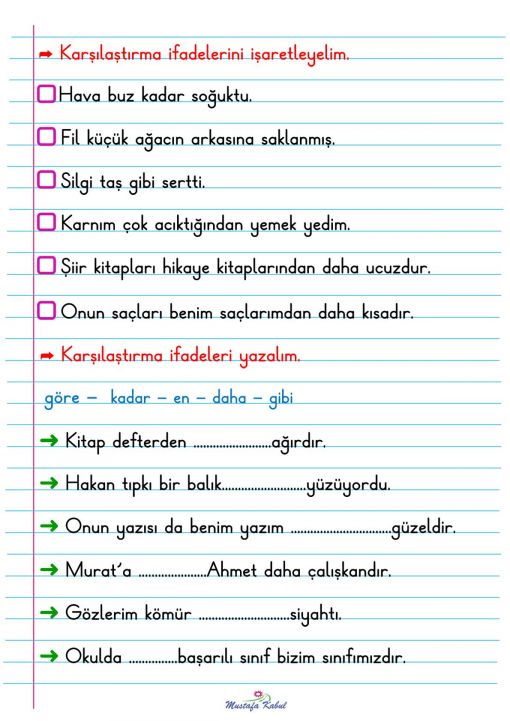 ➦ Karşılaştırma ifadelerini işaretleyelim.
Hava buz kadar soğuktu.
Fil küçük ağacın arkasına saklanmış.
Silgi taş gibi sertti.
Karnım çok acıktığından yemek yedim.
Şiir kitapları hikaye kitaplarından daha ucuzdur.
Onun saçları benim saçlarımdan daha kısadır.
➦ Karşılaştırma ifadeleri yazalım.
göre – kadar – en – daha – gibi
➔ Kitap defterden .......................ağırdır.
➔ Hakan tıpkı bir balık.........................yüzüyordu.
➔ Onun yazısı da benim yazım ..............................güzeldir.
➔ Murat’a ....................Ahmet daha çalışkandır.
➔ Gözlerim kömür ...........................siyahtı.
➔ Okulda ..............başarılı sınıf bizim sınıfımızdır.
Mustafa Kabul